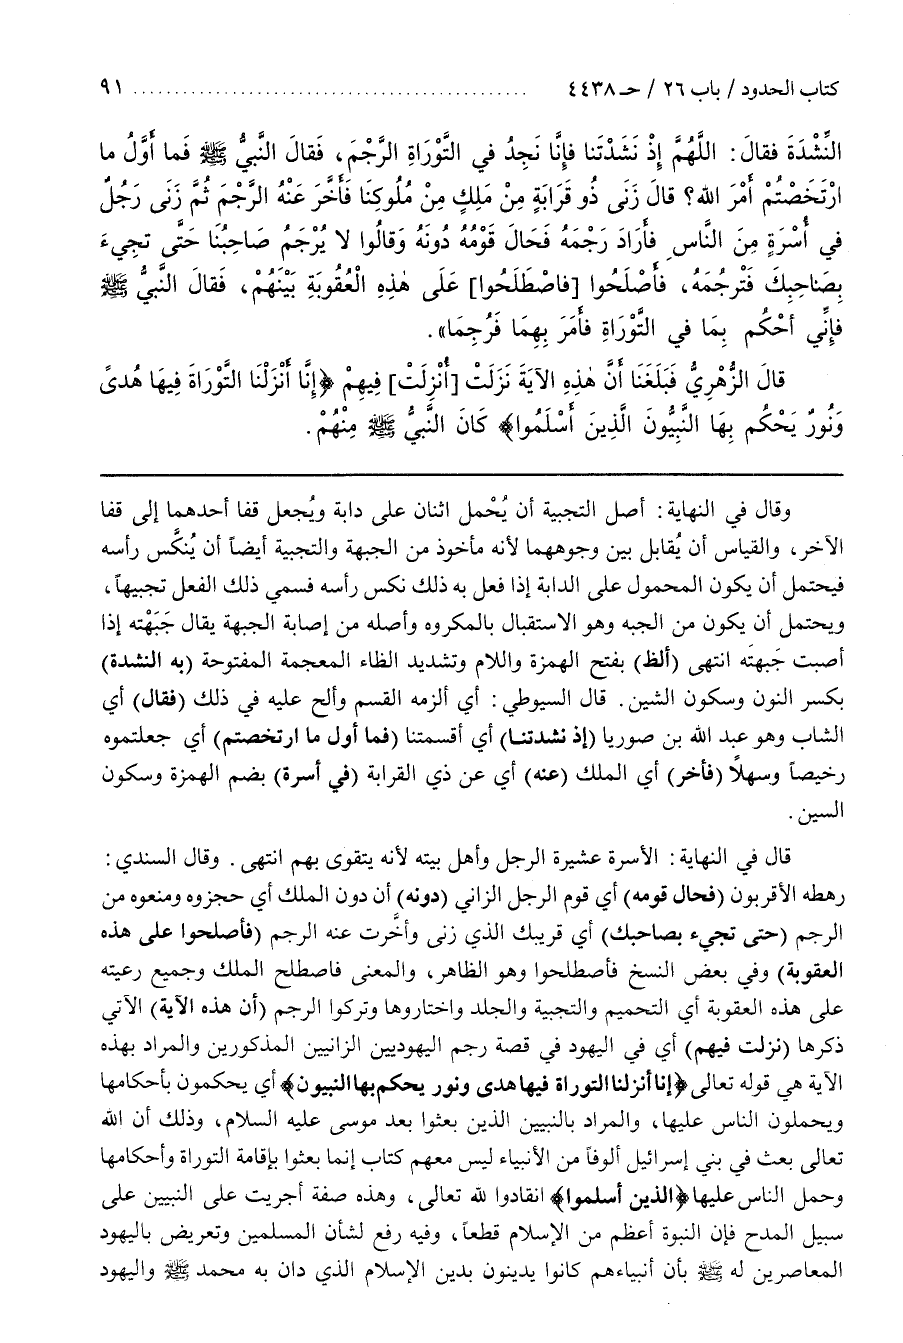 كتاب الحدود / باب ٢٦ / حـ ٤٤٣٨ ................................................ ٩١
النِّشْدَةَ فقالَ: اللَّهُمَّ إِذْ نَشَدْتَنا فإِنَّا نَجِدُ في التَّوْرَاةِ الرَّجْمَ، فَقالَ النَّبيُّ ﷺ فَما أَوَّلُ ما
ارْتَخَصْتُمْ أَمْرَ الله؟ قالَ زَنَى ذُو قَرَابَةٍ مِنْ مَلِكٍ مِنْ مُلُوكِنَا فَأَخَّرَ عَنْهُ الرَّجْمَ ثُمَّ زَنَى رَجُلٌ
في أُسْرَةٍ مِنَ النَّاسِ فأَرَادَ رَجْمَهُ فَحَالَ قَوْمُهُ دُونَهُ وَقالُوا لا يُرْجَمُ صَاحِبُنَا حَتَّى تَجِيءَ
بِصَاحِبِكَ فَتَرْجُمَهُ، فَأَصْلَحُوا [فاصْطَلَحُوا] عَلَى هٰذِهِ الْعُقُوبَةِ بَيْنَهُمْ، فَقالَ النَّبيُّ ﷺ
فإنِّي أحْكُم بِمَا في التَّوْرَاةِ فأَمَرَ بِهِمَا فَرُجِمَا».
قالَ الزُّهْرِيُّ فَبَلَغَنَا أنَّ هٰذِهِ الآيَةَ نَزَلَتْ [أُنْزِلَتْ] فِيهِمْ ﴿إنَّا أَنْزَلْنَا التَّوْرَاةَ فِيهَا هُدىً
وَنُورٌ يَحْكُم بِهَا النَّبِيُّونَ الَّذِينَ أَسْلَمُوا﴾ كَانَ النَّبيُّ ﷺ مِنْهُمْ.
وقال في النهاية: أصل التجبية أن يُحْمل اثنان على دابة ويُجعل قفا أحدهما إلى قفا
الآخر، والقياس أن يُقابل بين وجوههما لأنه مأخوذ من الجبهة والتجبية أيضاً أن يُنكَّس رأسه
فيحتمل أن يكون المحمول على الدابة إذا فعل به ذلك نكس رأسه فسمي ذلك الفعل تجبيهاً،
ويحتمل أن يكون من الجبه وهو الاستقبال بالمكروه وأصله من إصابة الجبهة يقال جَبَهْته إذا
أصبت جَبهتَه انتهى (ألظ) بفتح الهمزة واللام وتشديد الظاء المعجمة المفتوحة (به النشدة)
بكسر النون وسكون الشين. قال السيوطي: أي ألزمه القسم وألح عليه في ذلك (فقال) أي
الشاب وهو عبد الله بن صوريا (إذ نشدتنا) أي أقسمتنا (فما أول ما ارتخصتم) أي جعلتموه
رخيصاً وسهلاً (فأخر) أي الملك (عنه) أي عن ذي القرابة (في أسرة) بضم الهمزة وسكون
السين.
قال في النهاية: الأسرة عشيرة الرجل وأهل بيته لأنه يتقوى بهم انتهى. وقال السندي:
رهطه الأقربون (فحال قومه) أي قوم الرجل الزاني (دونه) أن دون الملك أي حجزوه ومنعوه من
الرجم (حتى تجيء بصاحبك) أي قريبك الذي زنى وأخَّرت عنه الرجم (فأصلحوا على هذه
العقوبة) وفي بعض النسخ فأصطلحوا وهو الظاهر، والمعنى فاصطلح الملك وجميع رعيته
على هذه العقوبة أي التحميم والتجبية والجلد واختاروها وتركوا الرجم (أن هذه الآية) الآتي
ذكرها (نزلت فيهم) أي في اليهود في قصة رجم اليهوديين الزانيين المذكورين والمراد بهذه
الآية هي قوله تعالى ﴿إنا أنزلنا التوراة فيها هدى ونور يحكم بها النبيون﴾ أي يحكمون بأحكامها
ويحملون الناس عليها، والمراد بالنبيين الذين بعثوا بعد موسى عليه السلام، وذلك أن الله
تعالى بعث في بني إسرائيل ألوفاً من الأنبياء ليس معهم كتاب إنما بعثوا بإقامة التوراة وأحكامها
وحمل الناس عليها ﴿الذين أسلموا﴾ انقادوا لله تعالى، وهذه صفة أجريت على النبيين على
سبيل المدح فإن النبوة أعظم من الإسلام قطعاً، وفيه رفع لشأن المسلمين وتعريض باليهود
المعاصرين له ﷺ بأن أنبياءهم كانوا يدينون بدين الإسلام الذي دان به محمد ﷺ واليهود